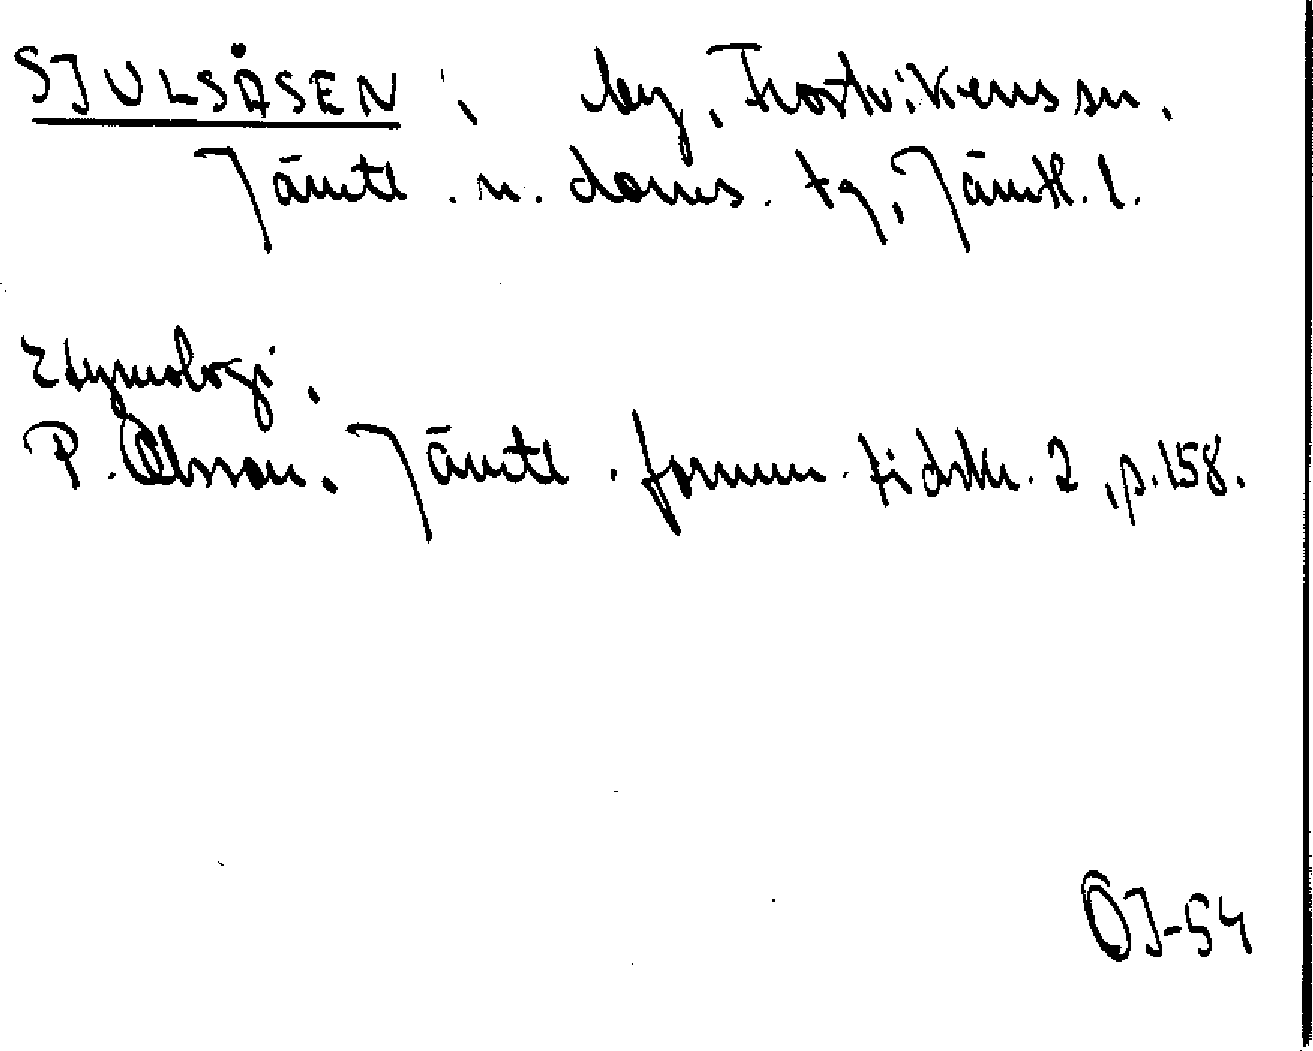 SJULSÅSEN ; by, Hotvikens sn.
Jämtl. n. doms. tg, Jämtl. l.
Etymologi.
P. Olsson. Jämtl. fornm. tidskr. 2, p. 158.
ÖJ-54